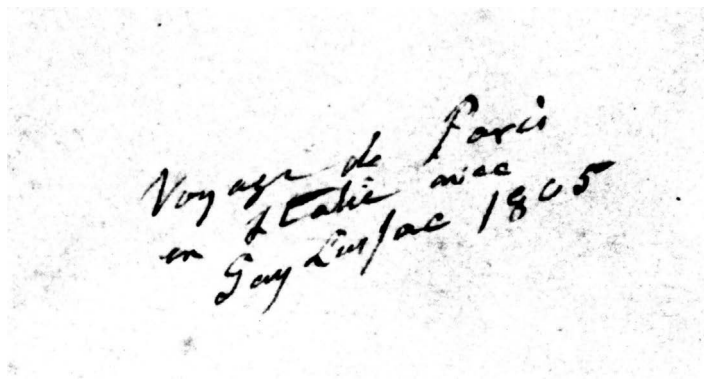 Voyage de Paris
en Italie avec
Gay Lussac 1805